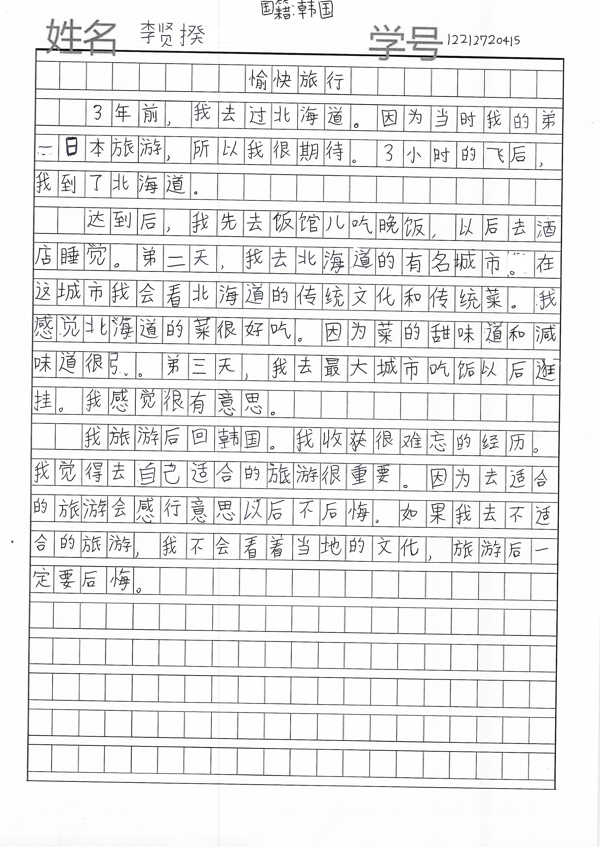 国籍:韩国
姓名 李贤揆 学号 12212720415
愉快旅行
3年前,我去过北海道。因为当时我的弟
一日本旅游,所以我很期待。3小时的飞后,
我到了北海道。
达到后,我先去饭馆儿吃晚饭,以后去酒
店睡觉。第二天,我去北海道的有名城市。在
这城市我会看北海道的传统文化和传统菜。我
感觉北海道的菜很好吃。因为菜的甜味道和减
味道很弓。第三天,我去最大城市吃饭以后逛
挂。我感觉很有意思。
我旅游后回韩国。我收获很难忘的经历。
我觉得去自己适合的旅游很重要。因为去适合
的旅游会感行意思以后不后悔.如果我去不适
合的旅游,我不会看着当地的文化,旅游后一
定要后悔。